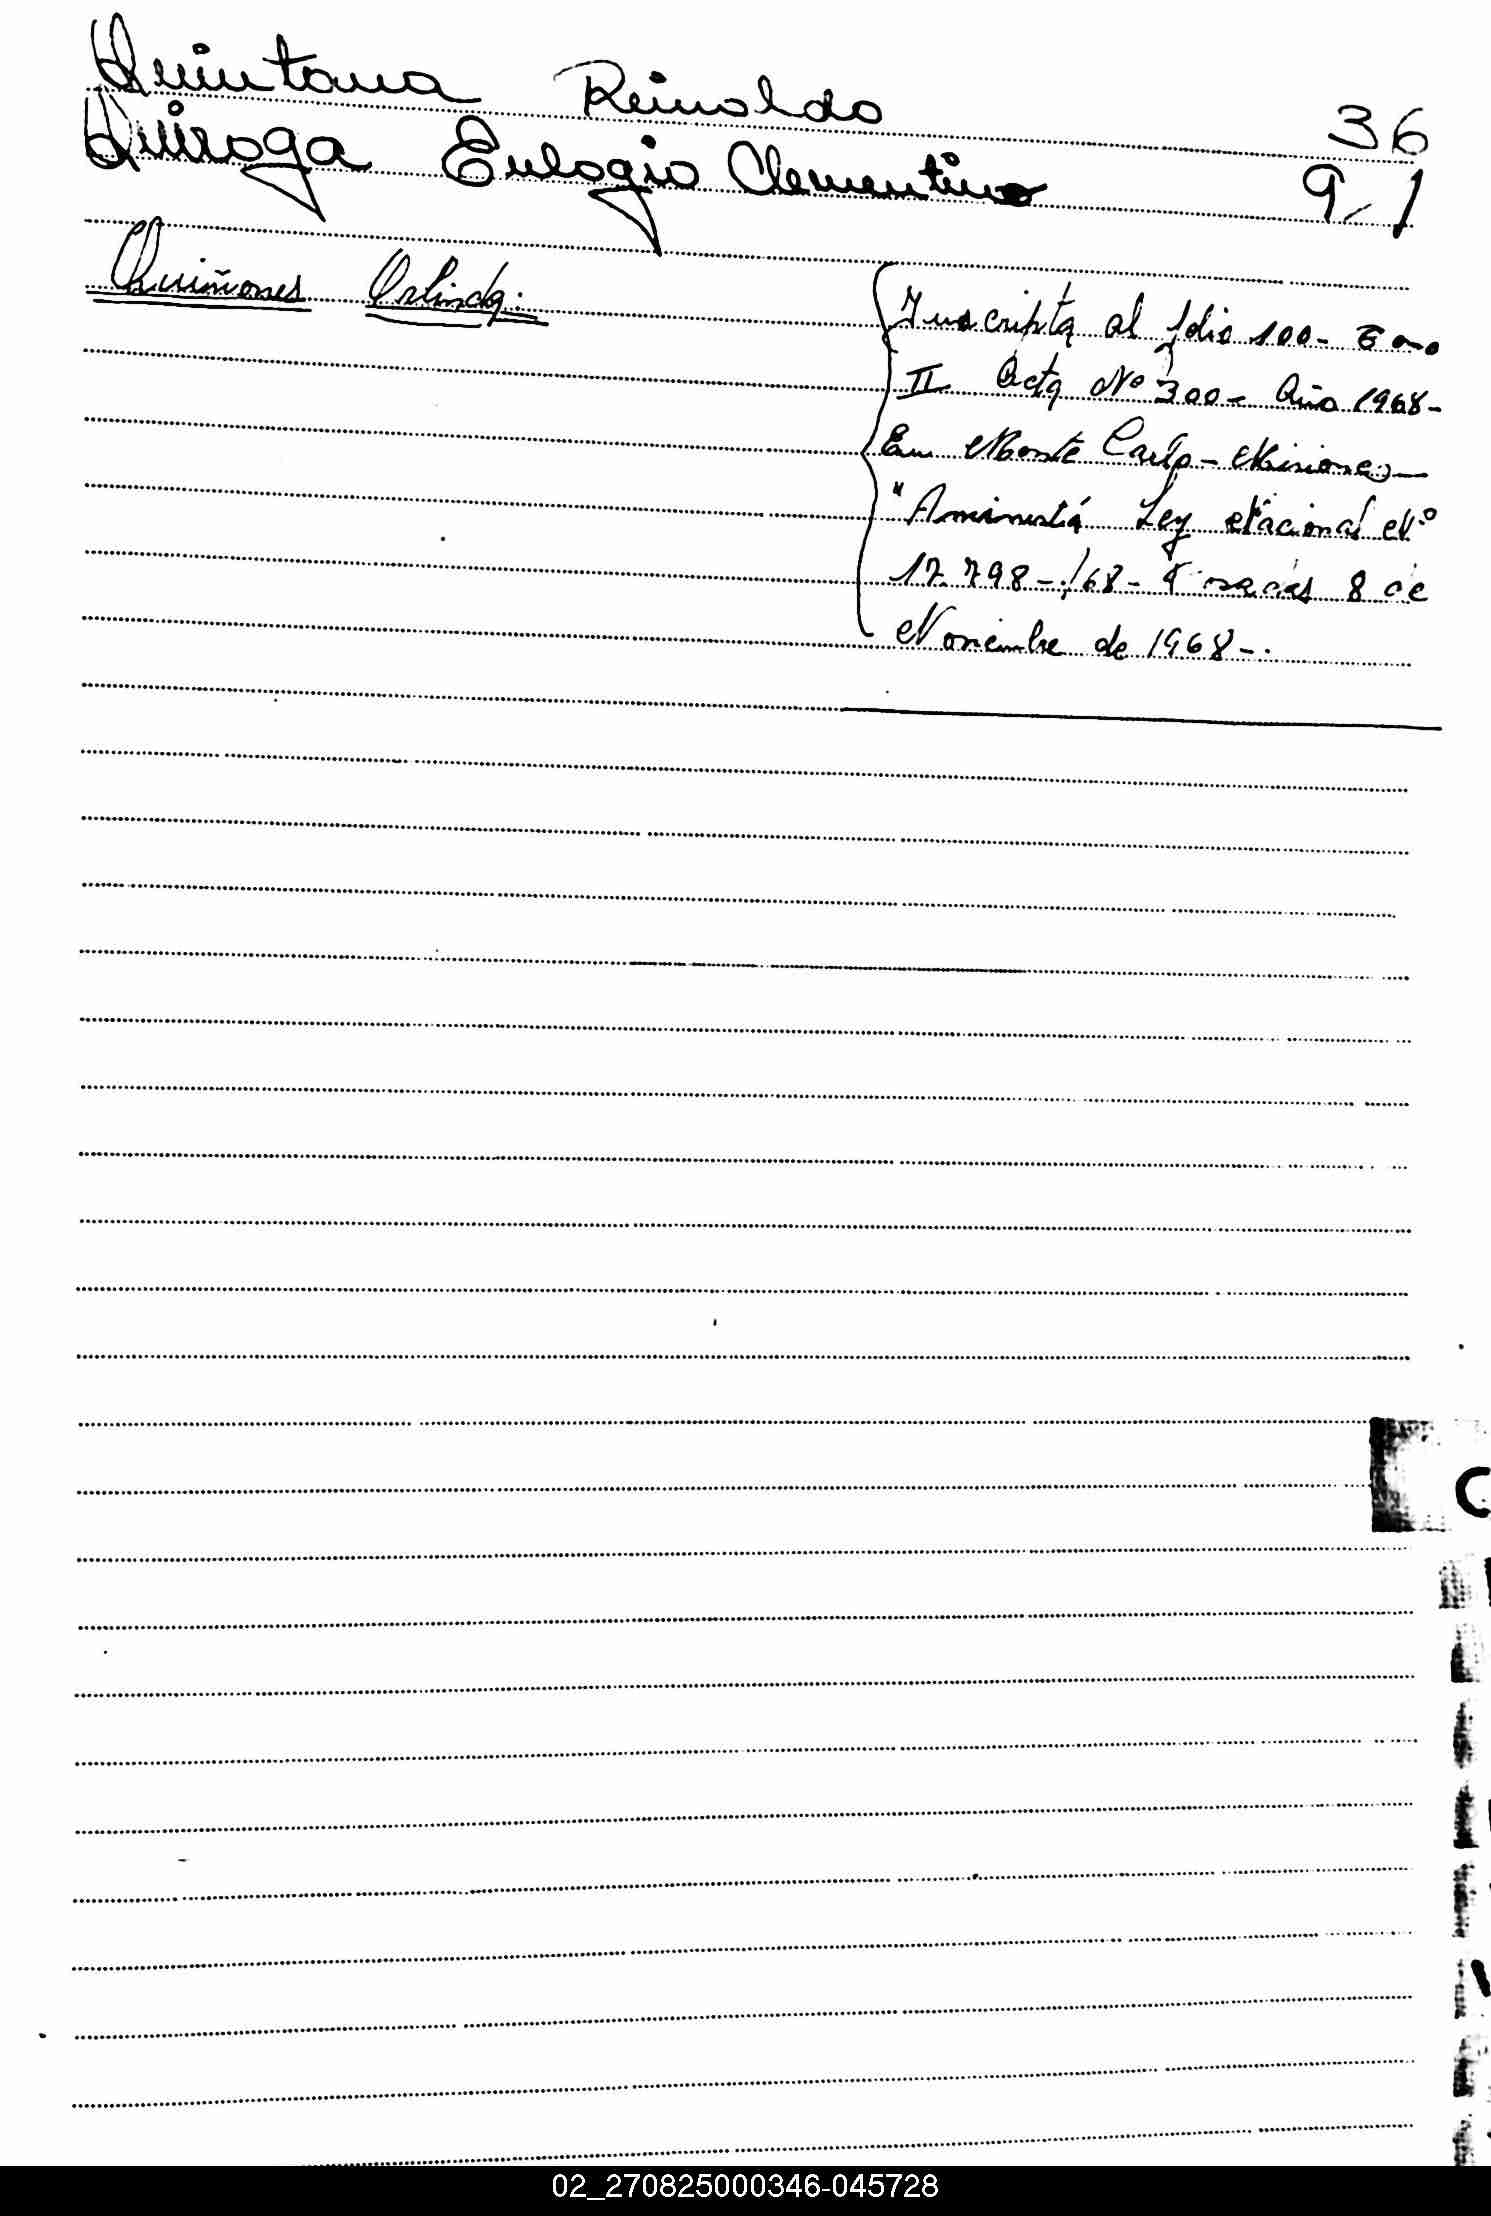 Quintana Reinaldo 36
Quiroga Eulogio Clementino 9-1
Quiñones Orlinda.
Inscripta al folio 100- Tomo
II Acta Nº 300- Año 1968-
En Monte Carlo - Misiones -
"Aminístia Ley Nacional Nº
17.798-/68- Posadas 8 de
Noviembre de 1968-.
C
02_270825000346-045728